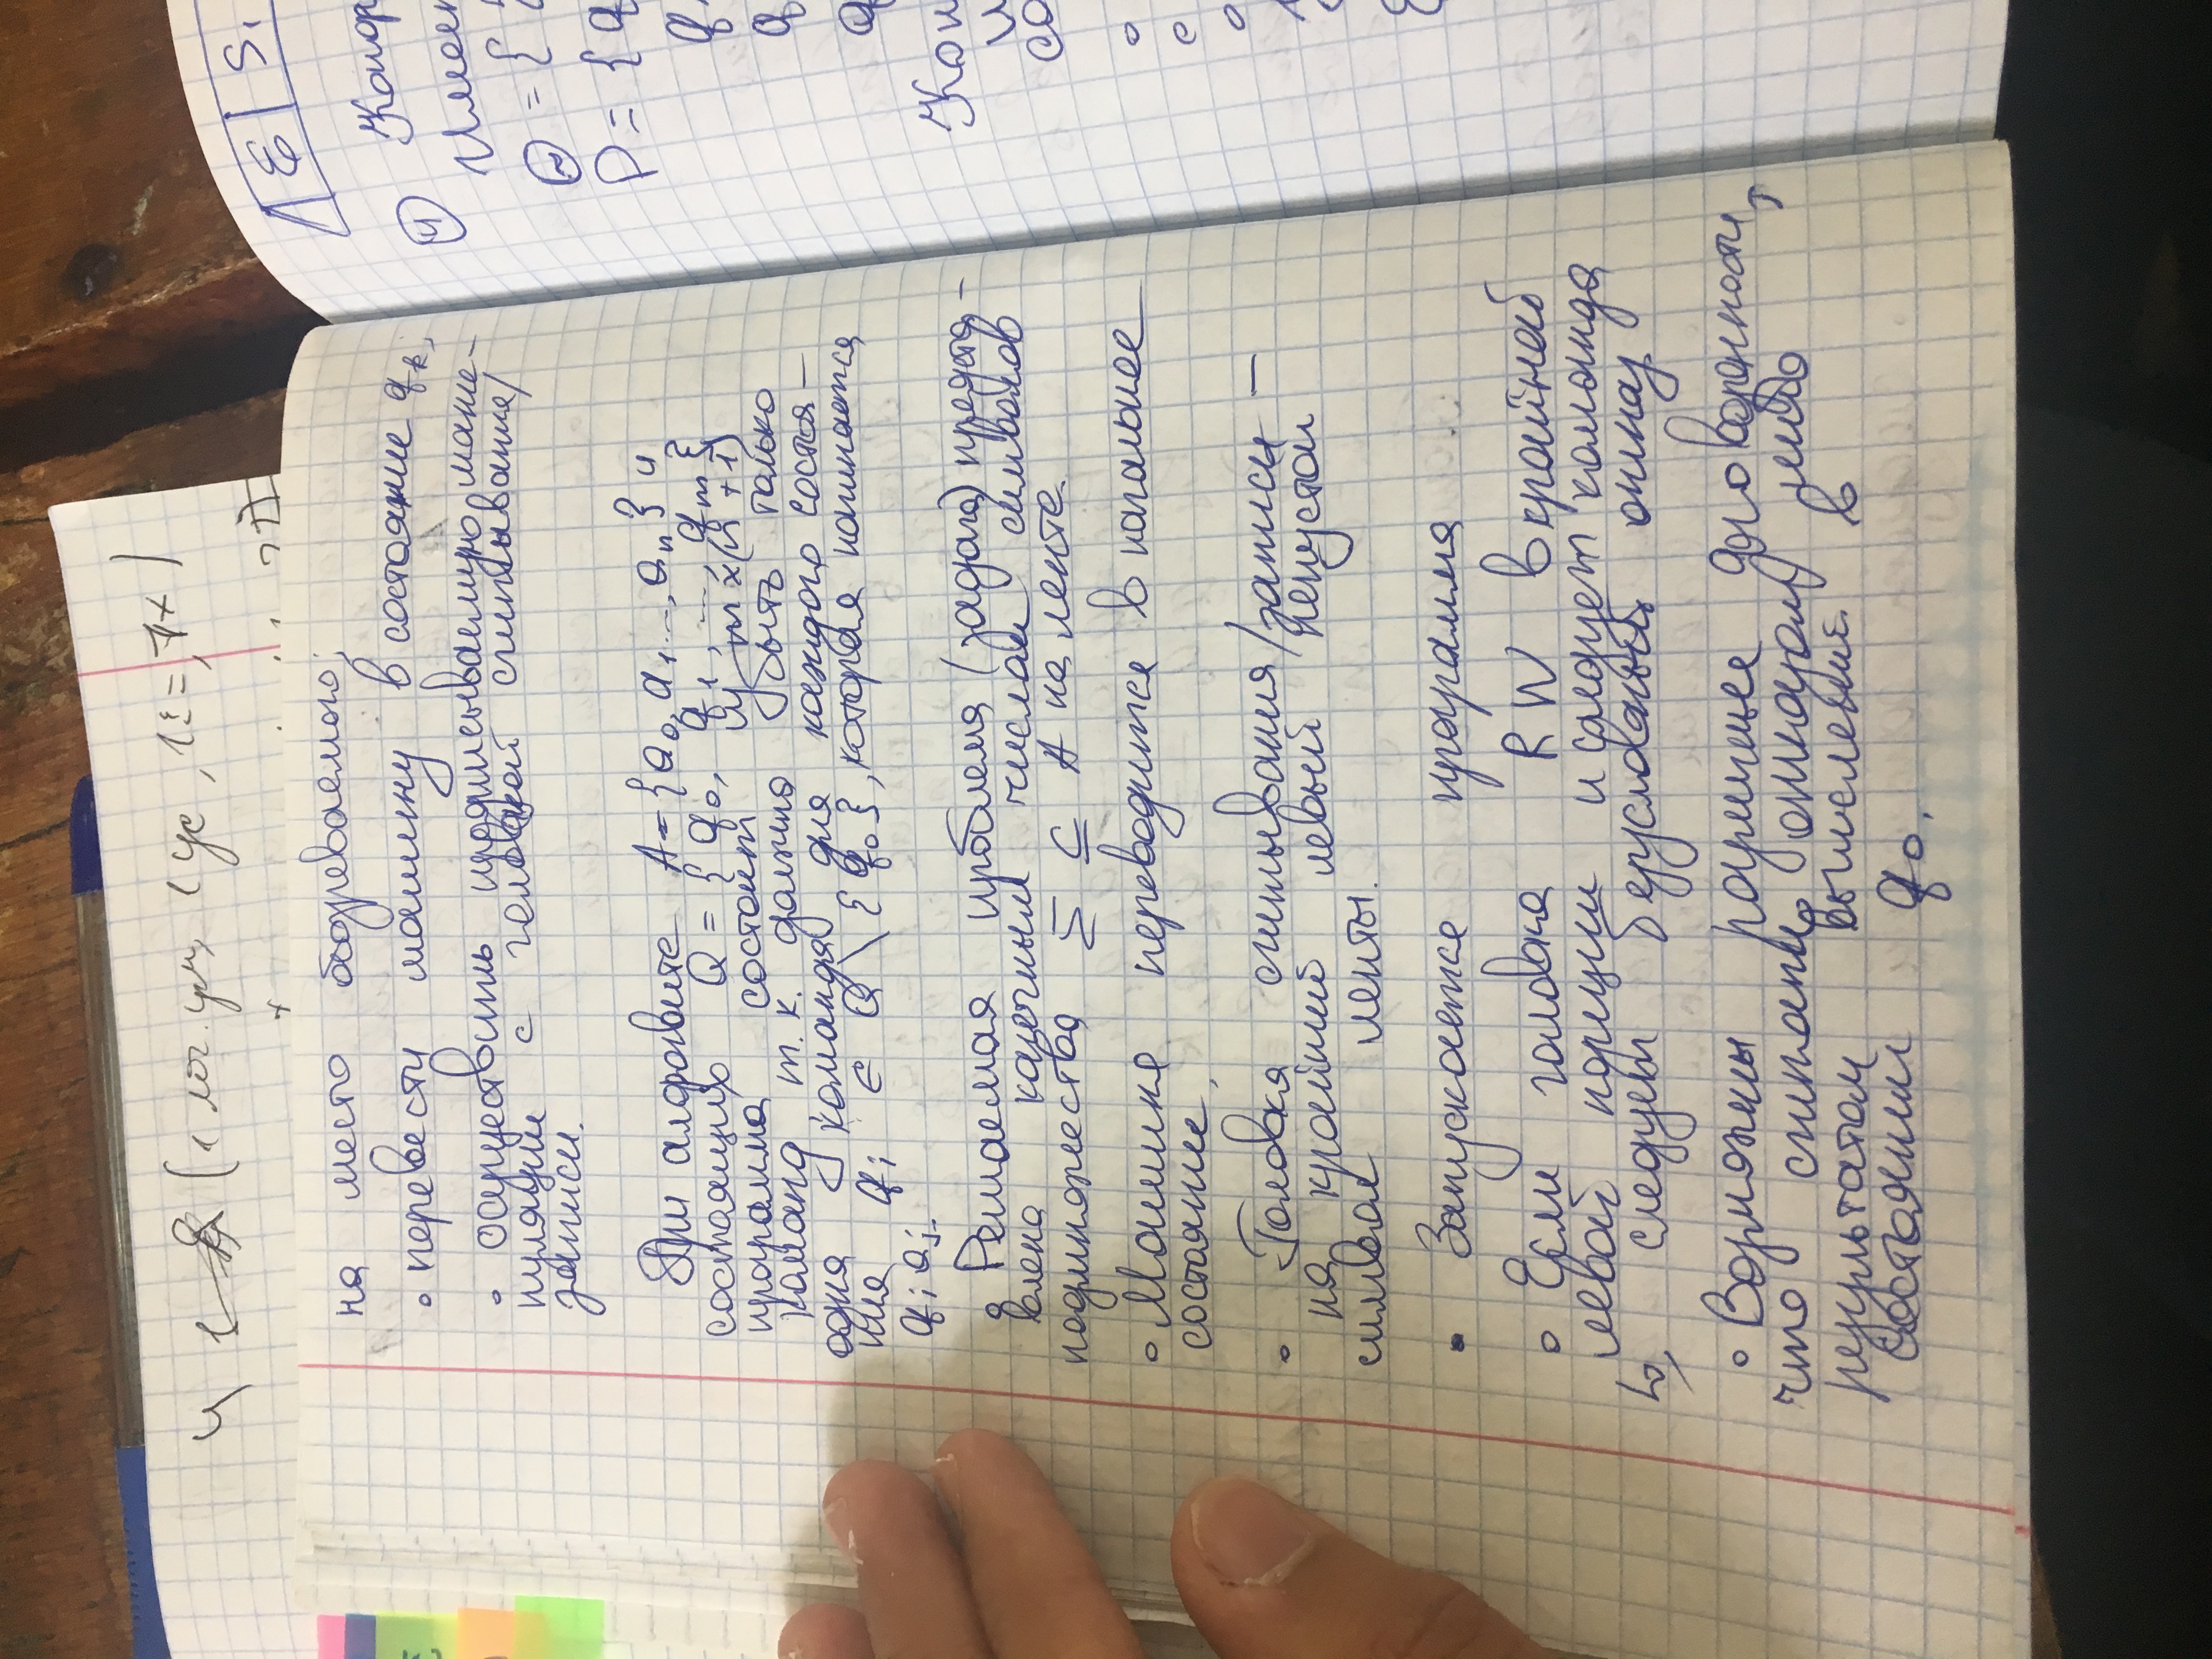 ч 1 (1 лог. ум, 1 ус, 1 := , 7+)
на место обозреваемого;
◦ перевести машину в состояние qₖ;
◦ осуществить предписываемую мани-
пуляции с головкой считывания/
записи.
При алфавите A = {a₀, a₁ ..., aₙ} и
состояниях Q = {q₀, q₁, ..., qₘ}
программа состоит из m×(n+1)
команд, т.к. должна быть только
одна команда для каждого состоя-
ния qᵢ ∈ Q \ {q₀}, которая начинается
qᵢ aⱼ.
◦ Решаемая проблема (задача) предста-
влена конечным числом символов
подмножества Σ ⊆ A на ленте.
◦ Машина переводится в начальное
состояние.
◦ Головка считывания/записи —
на крайний левый непустой
символ ленты.
• Запускается программа
◦ Если головка RW в крайней
левой позиции и следует команда
L, следует безусловный отказ
◦ Возможны различные договоренности,
что считать отказом либо
результатом вычислений в
состоянии q₀.
ε S₁
④
Q = {
P = { q
q
q
q